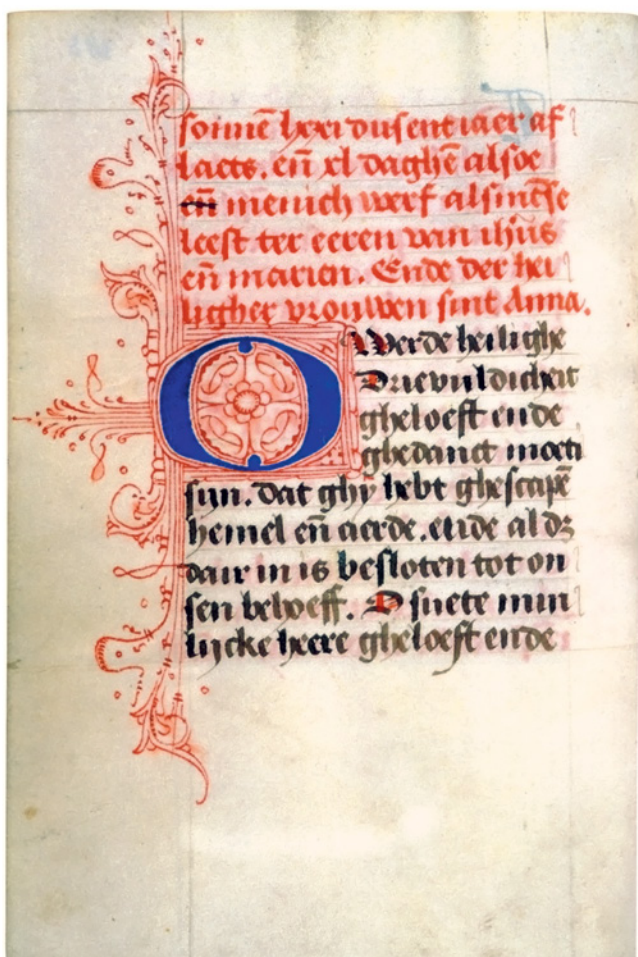 somē lxxi dusent iaer af
laets. eñ xl daghē alsoe
eñ menich werf alsmēse
leest ter eeren van ihūs
eñ marien. Ende der hei
ligher vrouwen sint Anna.
O Werde heilighe
Drievuldicheit
gheloeft ende
ghedanct moeti
sijn. dat ghy hebt ghescapē
hemel eñ aerde. ende al dʒ
dair in is besloten tot on
sen behoeff. O suete min
lijcke heere gheloeft ende